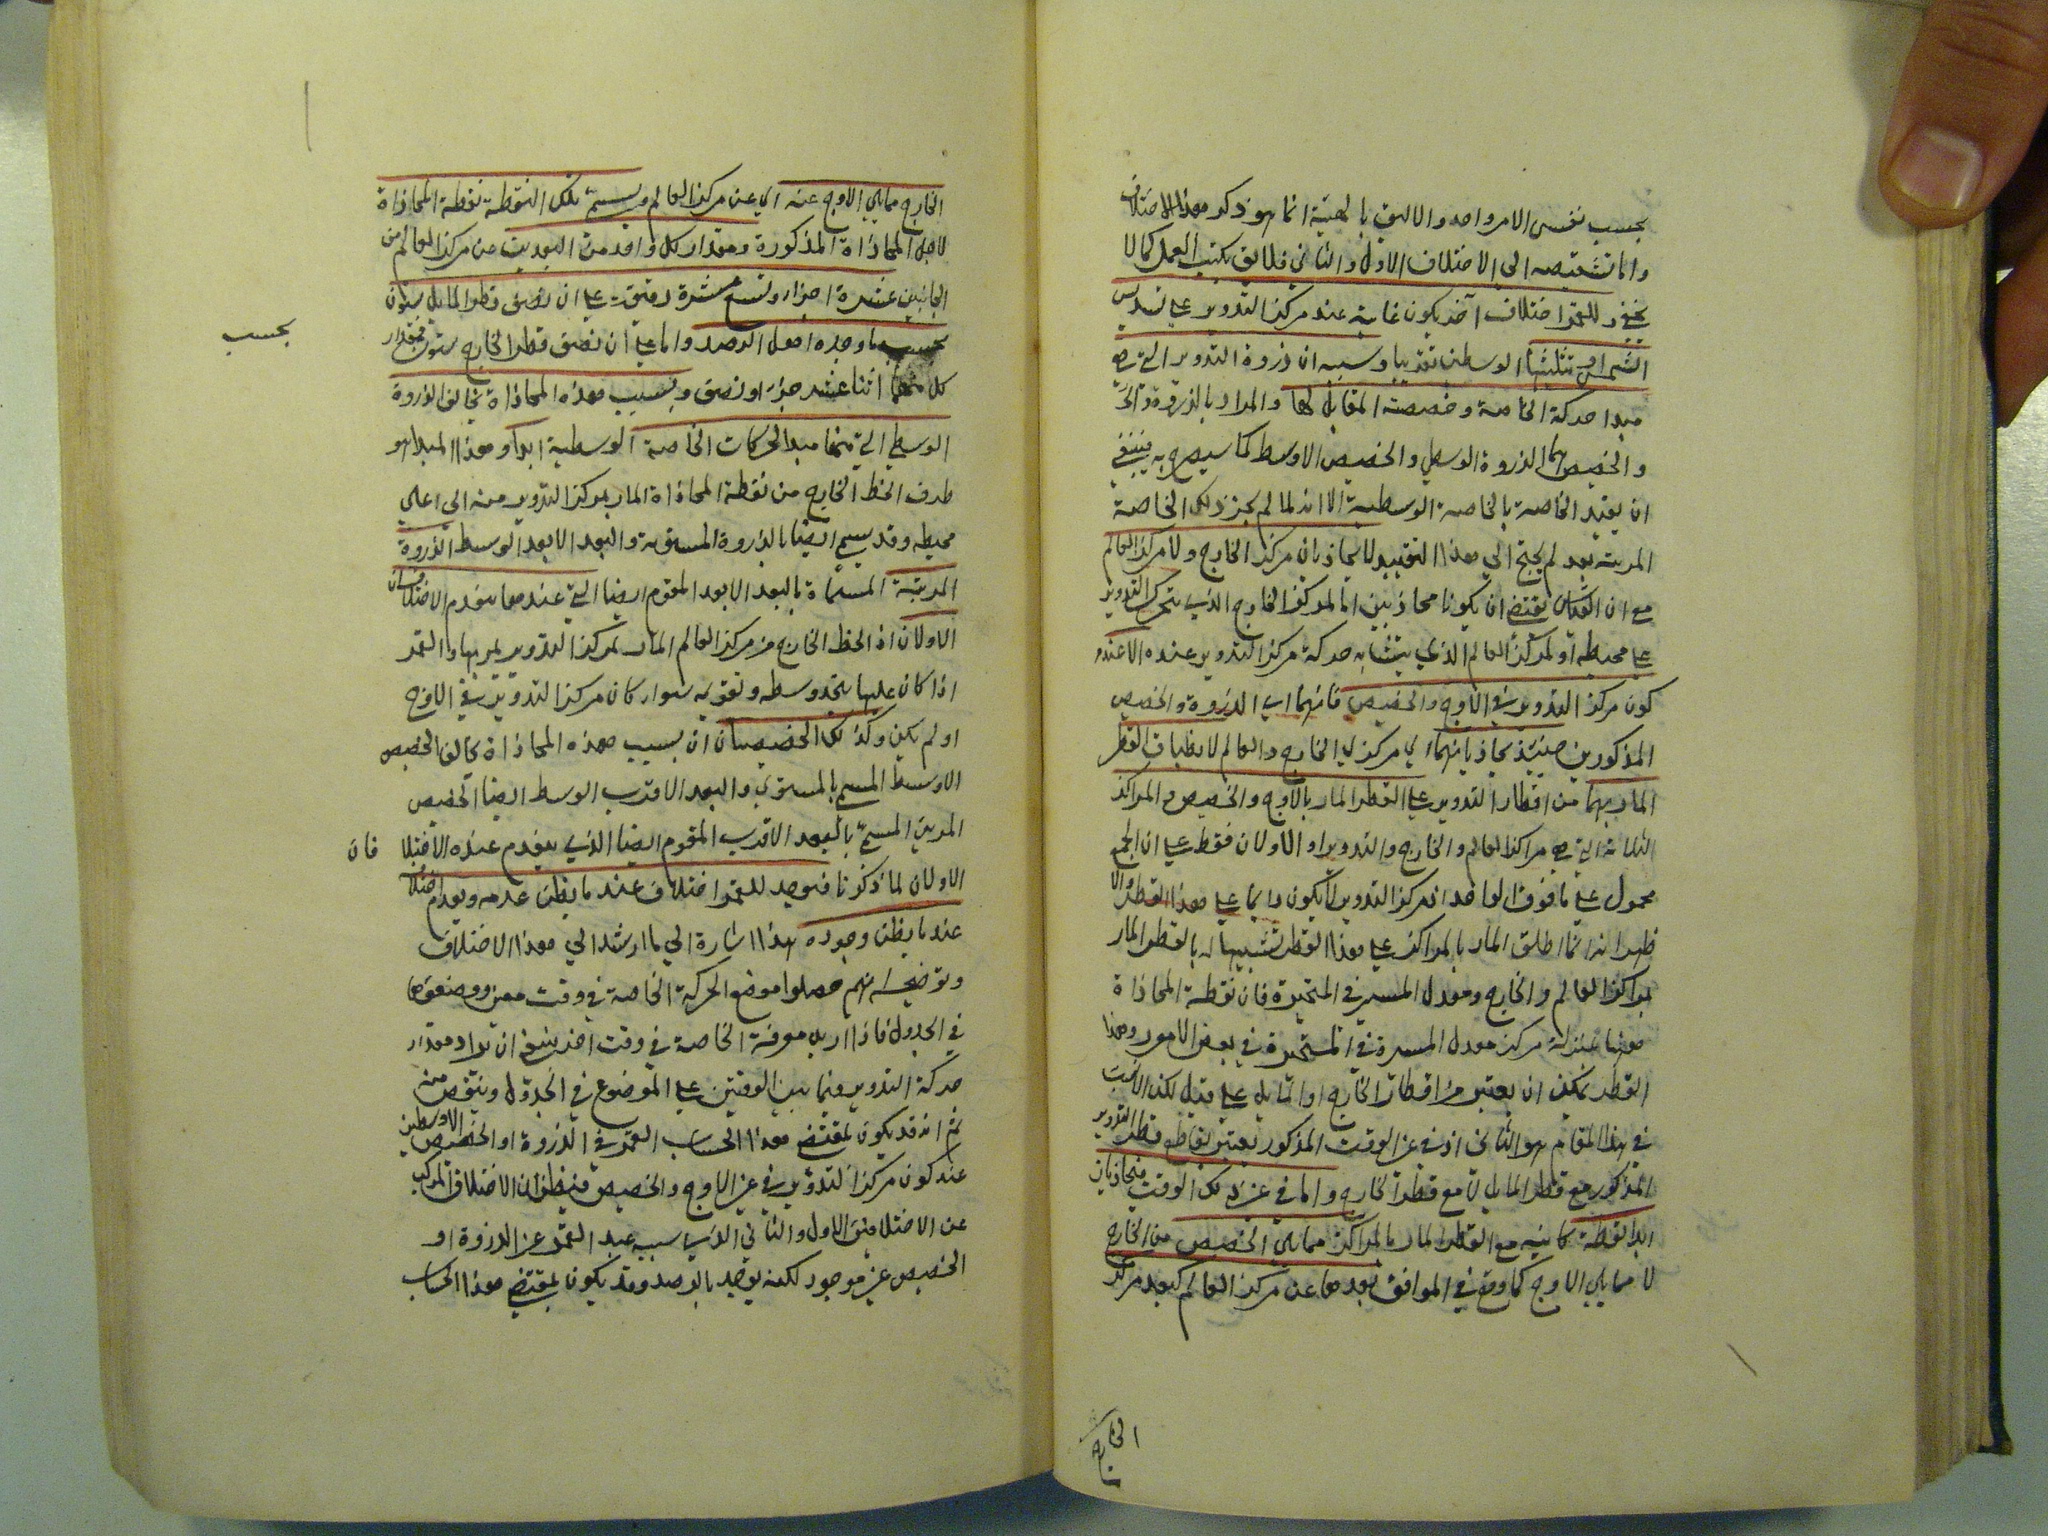 بحسب نفس الامر واحد والاليق بالهيئة انما هو ذكر هذا الاختلاف
واما تشعيبه الى الاختلاف الاول والثاني فلايق بكتب العمل كما لا
يخفى وللقمر اختلاف آخر يكون غايته عند مركز التدوير على تسديس
الشمس وتثليثها الوسطين تقريبا وسببه ان ذروة التدوير التي هي
مبدا حركة الخاصة وحضيضه المقابل لها والمراد بالذروة
والحضيض هما الذروة الوسطى والحضيض الاوسط كما سيصرح به فينبغي
ان يقيد الخاصة بالخاصة الوسطية الا انه لما لم يجز ذلك الخاصة
المرئية بعد لم يحتج الى هذا التقييد لا يحاذيان مركز الخارج ولا مركز العالم
مع ان القياس يقتضي ان يكونا محاذيين اما لمركز الخارج الذي يتحرك التدوير
على محيطه او لمركز العالم الذي يتشابه حركة مركز التدوير عنده الا عند
كون مركز التدوير في الاوج والحضيض فانهما اي الذروة والحضيض
المذكورين حينئذ يحاذيانهما اي مركزي الخارج والعالم لانطباق القطر
المار بهما من اقطار التدوير على القطر المار بالاوج والحضيض والمراكز
الثلاثة التي هي مراكز العالم والخارج والتدوير او الاولان فقط على ان الجمع
محمول على ما فوق الواحد اذ مركز التدوير لا يكون دائما على هذا القطر والا
ظهر انه انما اطلق المار بالمراكز على هذا القطر تشبيها له بالقطر المار
بمراكز العالم والخارج ومعدل المسير في المتحيرة فان نقطة المحاذاة
ههنا بمنزلة مركز معدل المسير في المتحيرة في بعض الامور وهذا
القطر يمكن ان يعتبر من اقطار الخارج او المايل على قياس لكن الانسب
في هذا المقام هو الثاني اذ في غير الوقت المذكور يعتبر تقاطع قطر التدوير
المذكور مع قطر المايل لا مع قطر الخارج واما في غير ذلك الوقت فيحاذيان
ابدا نقطة كائنة مع القطر المار بالمراكز مما يلي الحضيض من الخارج
لا مما يلي الاوج كما وقع في المواقف بعدها عن مركز العالم كبعد مركز
الخارج
الخارج مما يلي الاوج عنه اي عن مركز العالم ويسمى تلك النقطة نقطة المحاذاة
لاجل المحاذاة المذكورة ومقدار كل واحد من البعدين عن مركز العالم من
الجانبين عشرة اجزاء وتسع عشرة دقيقة على ان نصف قطر المايل ستون
بحسب ما وجده اصل الرصد واما على ان نصف قطر الخارج ستون فمقدار
بحسب
كل منهما اثنا عشر جزءا ونصف وبسبب هذه المحاذاة تخالف الذروة
الوسطى التي منها مبدا الحركات الخاصة الوسطية ابدا وهذا المبدا هو
طرف الخط الخارج من نقطة المحاذاة المار بمركز التدوير منه الى اعلى
محيطه وقد يسمى ايضا بالذروة المستوية والبعد الابعد الوسط الذروة
المرئية المسماة بالبعد الابعد المقوم ايضا التي عندها ينعدم الاختلافان
الاولان اذ الخط الخارج من مركز العالم المار بمركز التدوير يمر بها والقمر
اذا كان عليها يتحد وسطه وتقويمه سواء كان مركز التدوير في الاوج
او لم يكن وكذلك الحضيضان ان بسبب هذه المحاذاة يخالف الحضيض
الاوسط المسمى بالمستوى والبعد الاقرب الوسط ايضا الحضيض
المرئي المسمى بالبعد الاقرب المقوم ايضا الذي ينعدم عنده الاختلا فان
الاولان لما ذكرنا فيوجد للقمر اختلاف عند ما يظن عدمه ويعدم اختلاف
عند ما يظن وجوده هذا اشارة الى ما ارشد الى هذا الاختلاف
وتوضيحه انهم حصلوا موضع الحركة الخاصة في وقت معين ووضعوها
في الجدول فاذا اريد معرفة الخاصة في وقت اخر ينبغي ان يزاد مقدار
حركة التدوير فيما بين الوقتين على الموضوع في الجدول وينقص منه
ثم انه قد يكون بمقتضى هذا الحساب القمر في الذروة او الحضيض الاوسطين
عند كون مركز التدوير في غير الاوج والحضيض فيظن ان الاختلاف المركب
من الاختلافين الاول والثاني الذي سببه بعد القمر عن الذروة او
الحضيض غير موجود لكنه يوجد بالرصد وقد يكون بمقتضى هذا الحساب